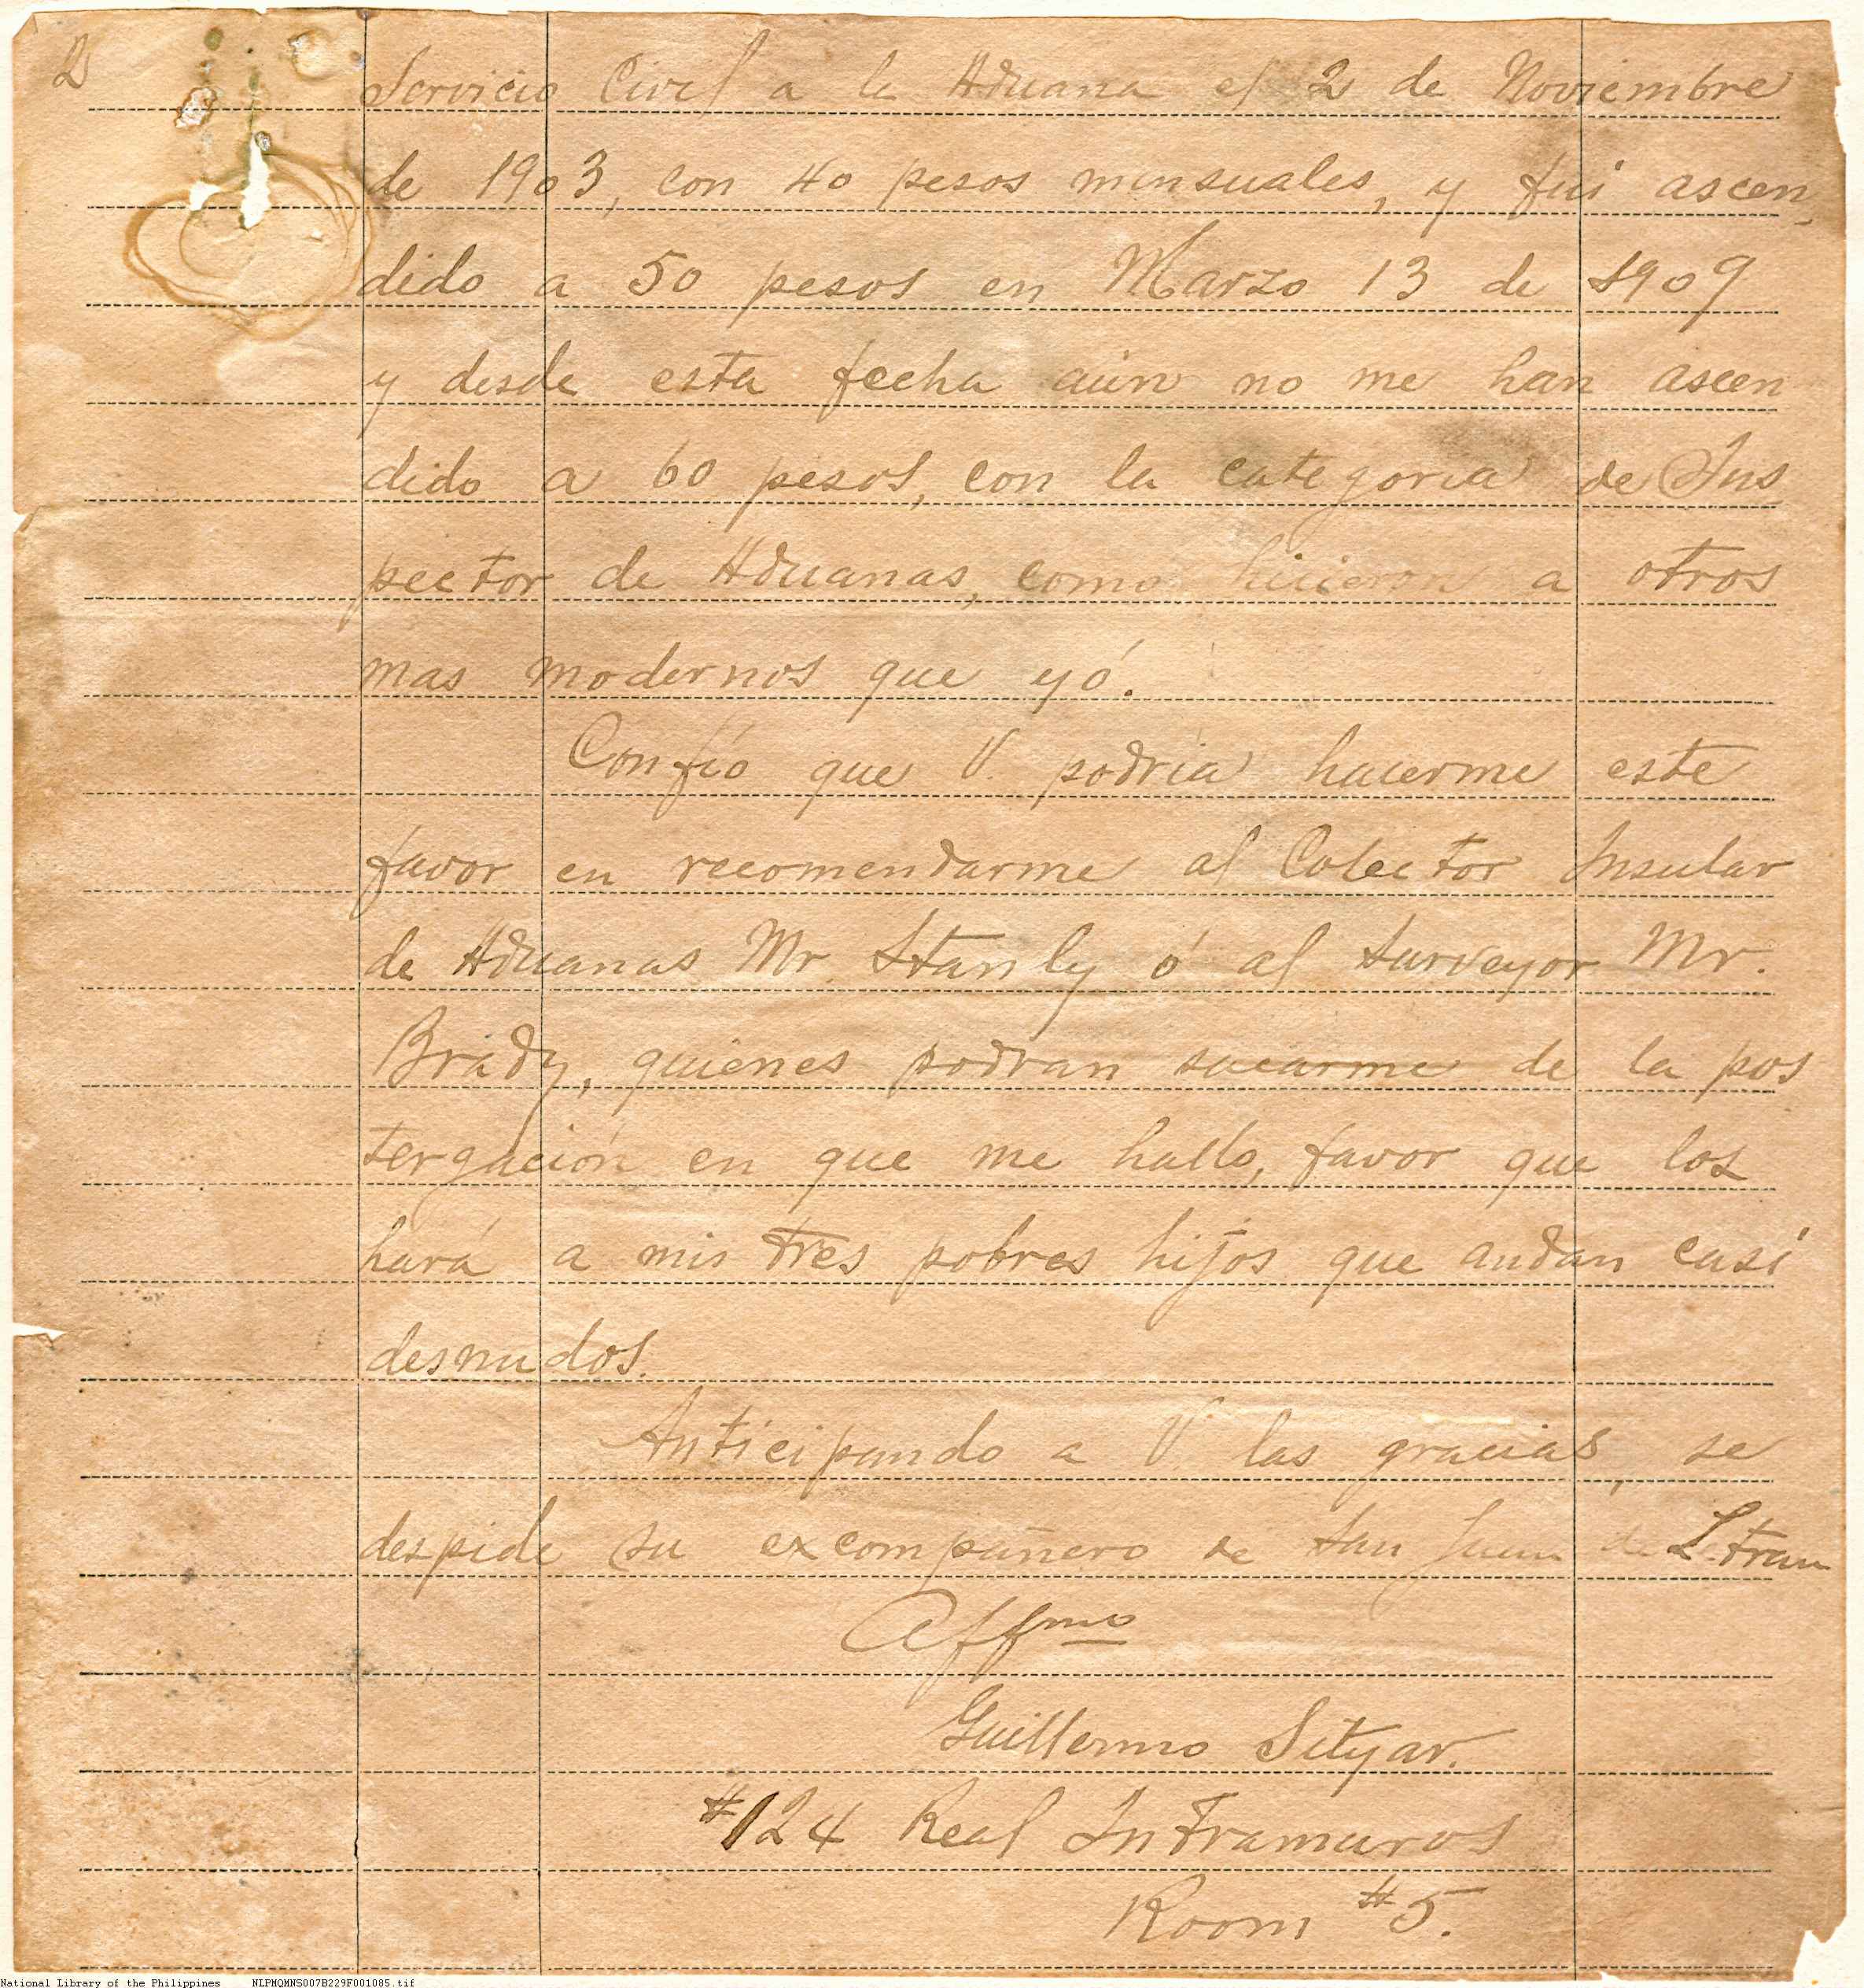 2
Servicio Civil a la Aduana el 2 de Noviembre
de 1903, con 40 pesos mensuales, y fui ascen-
dido a 50 pesos en Marzo 13 de 1909
y desde esta fecha aún no me han ascen
dido a 60 pesos, con la categoria de Ins
pector de Aduanas, como hicieron a otros
mas modernos que yó.
Confío que V. podria hacerme este
favor en recomendarme al Colector Insular
de Aduanas Mr. Stanly ó al Surveyor Mr.
Brady, quienes podran sacarme de la pos
tergación en que me hallo, favor que los
hará a mis tres pobres hijos que andan casi
desnudos.
Anticipando a V. las gracias, se
despide su excompañero de San Juan de Letran
Affmo
Guillermo Sityar.
#124 Real Intramuros
Room #5.
National Library of the Philippines NLPMQMNS007B229F001085.tif